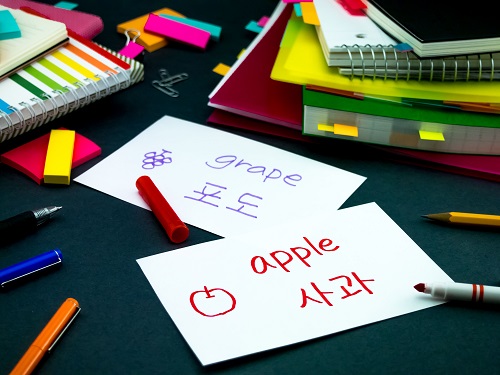 grape
포도
apple
사과